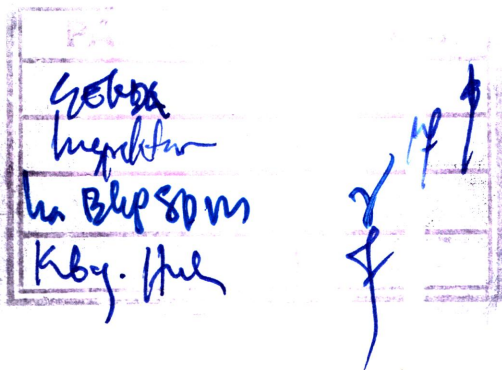 SEKDA
Inspektur
Ka BKPSDM
Kbg. Huk